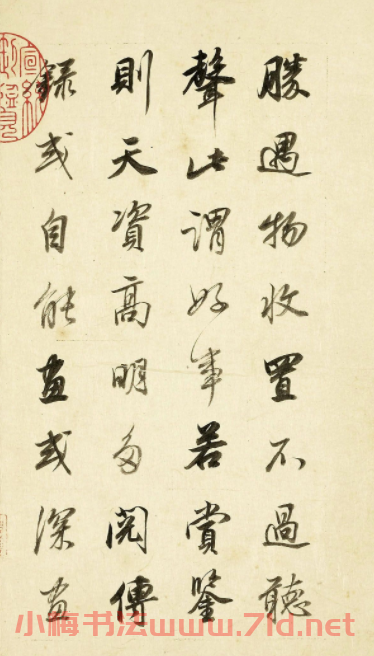 勝遇物收置不過聽
聲此謂好事若賞鑒
則天資高明多閱傳
録或自能畫或深畫
小梅书法www.7ld.net